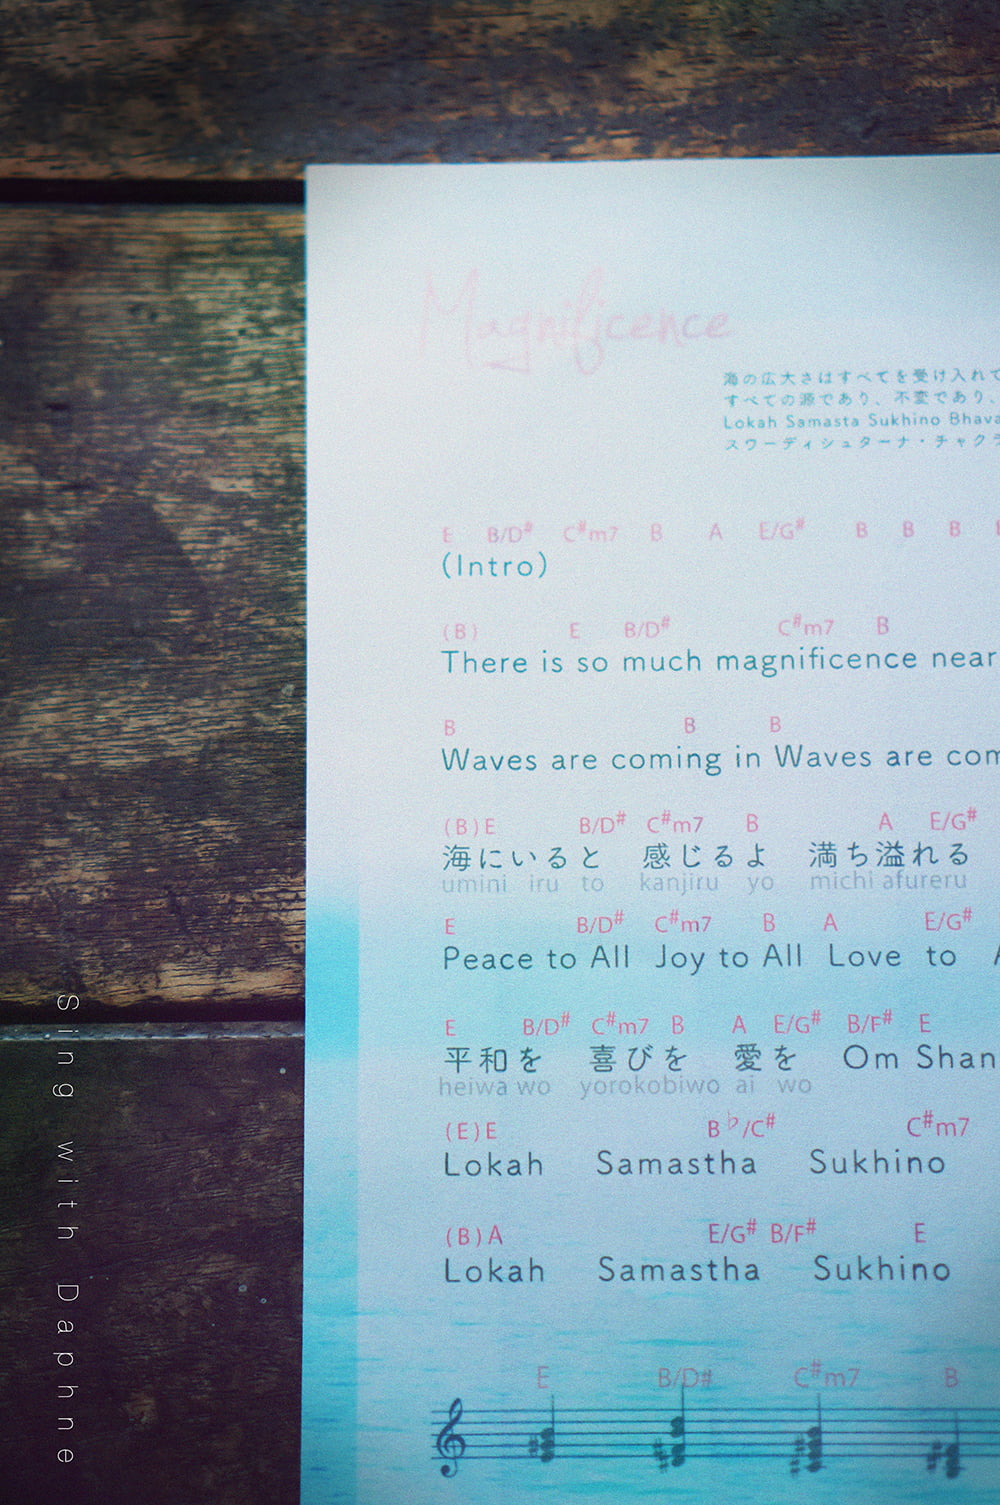 Magnificence
海の広大さはすべてを受け入れて
すべての源であり、不変であり、
Lokah Samasta Sukhino Bhava
スワーディシュターナ・チャクラ
E B/D# C#m7 B A E/G# B B B
(Intro)
(B) E B/D# C#m7 B
There is so much magnificence near
B B B
Waves are coming in Waves are com
(B) E B/D# C#m7 B A E/G#
海にいると 感じるよ 満ち溢れる
umini iru to kanjiru yo michi afureru
E B/D# C#m7 B A E/G#
Peace to All Joy to All Love to A
E B/D# C#m7 B A E/G# B/F# E
平和を 喜びを 愛を Om Shan
heiwa wo yorokobiwo ai wo
(E) E B♭/C# C#m7
Lokah Samastha Sukhino
(B) A E/G# B/F# E
Lokah Samastha Sukhino
E B/D# C#m7 B
Sing with Daphne